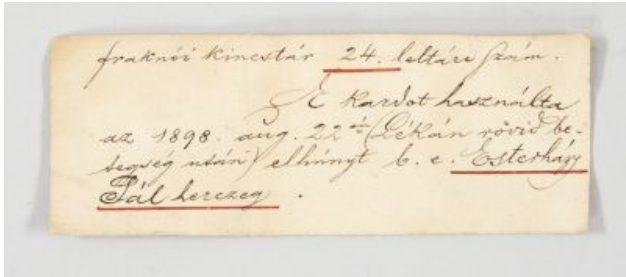 fraknói kincstár 24. leltári szám.
E kardot használta
az 1898. aug. 22én (Lékán rövid be-
tegség után) elhúnyt b. e. Esterházy
Pál herczeg.